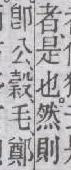 者是也然則
卽公穀毛鄭